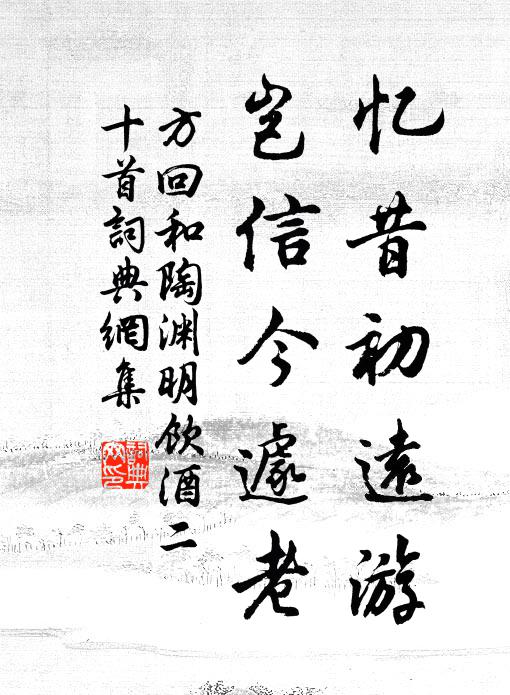 忆昔初遠游
岂信今遽老
方回和陶渊明饮酒二
十首詞典網集